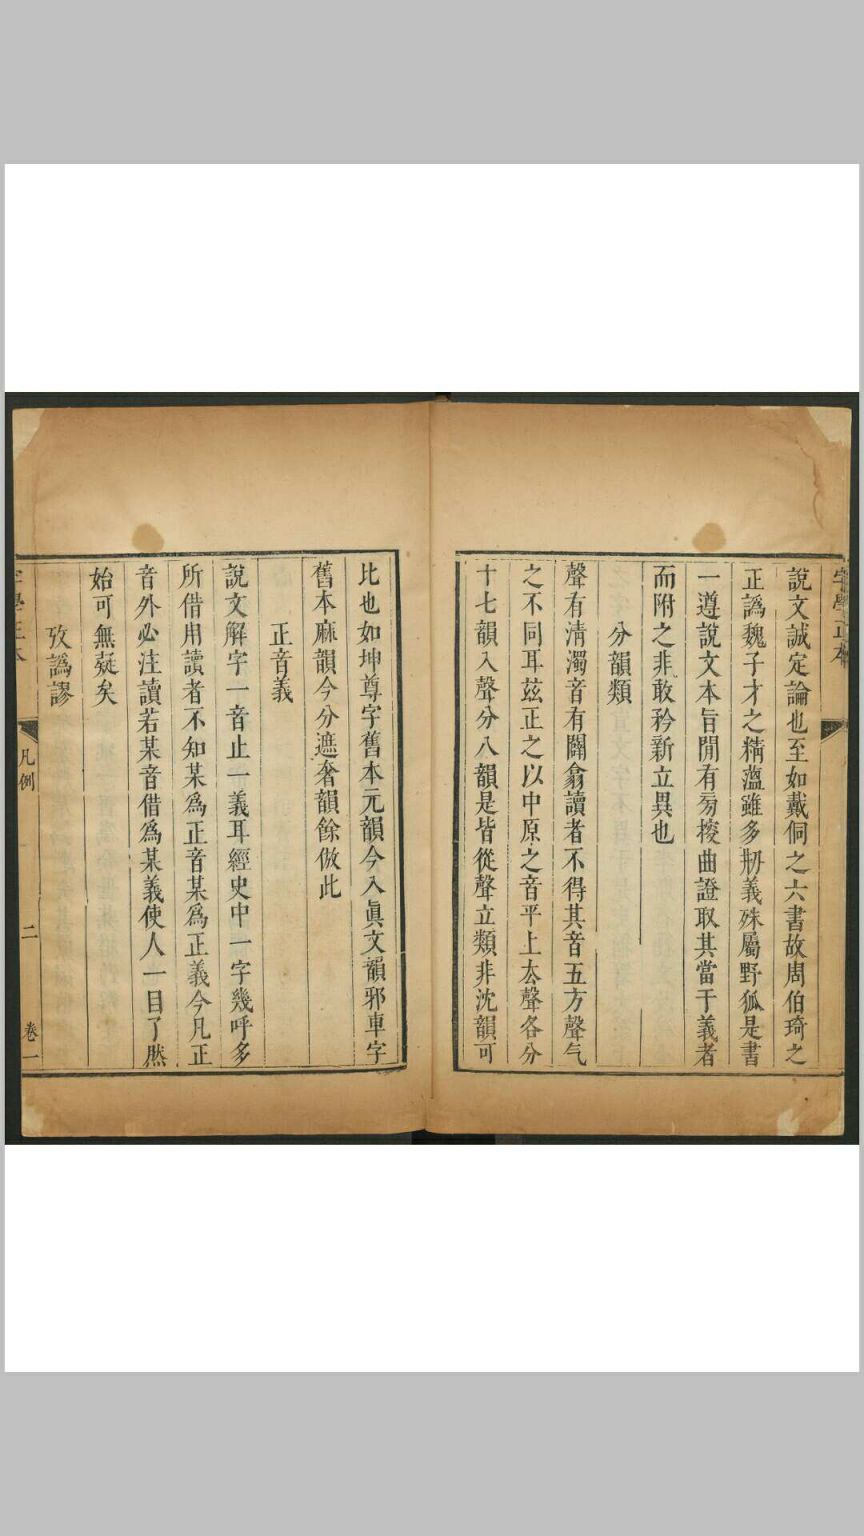 字學正本
說文誠定論也至如戴侗之六書故周伯琦之
正譌魏子才之精蘊雖多刱義殊屬野狐是書
一遵說文本旨閒有㫄椄曲證取其當于義者
而附之非敢矜新立異也
分韻類
聲有淸濁音有闢翕讀者不得其音五方聲气
之不同耳茲正之以中原之音平上厺聲各分
十七韻入聲分八韻是皆從聲立類非沈韻可
比也如坤尊字舊本元韻今入眞文韻邪車字
舊本麻韻今分遮奢韻餘倣此
正音義
說文解字一音止一義耳經史中一字幾呼多
所借用讀者不知某爲正音某爲正義今凡正
音外必注讀若某音借爲某義使人一目了然
始可無疑矣
攷譌謬
字學正本
凡例
二
卷一